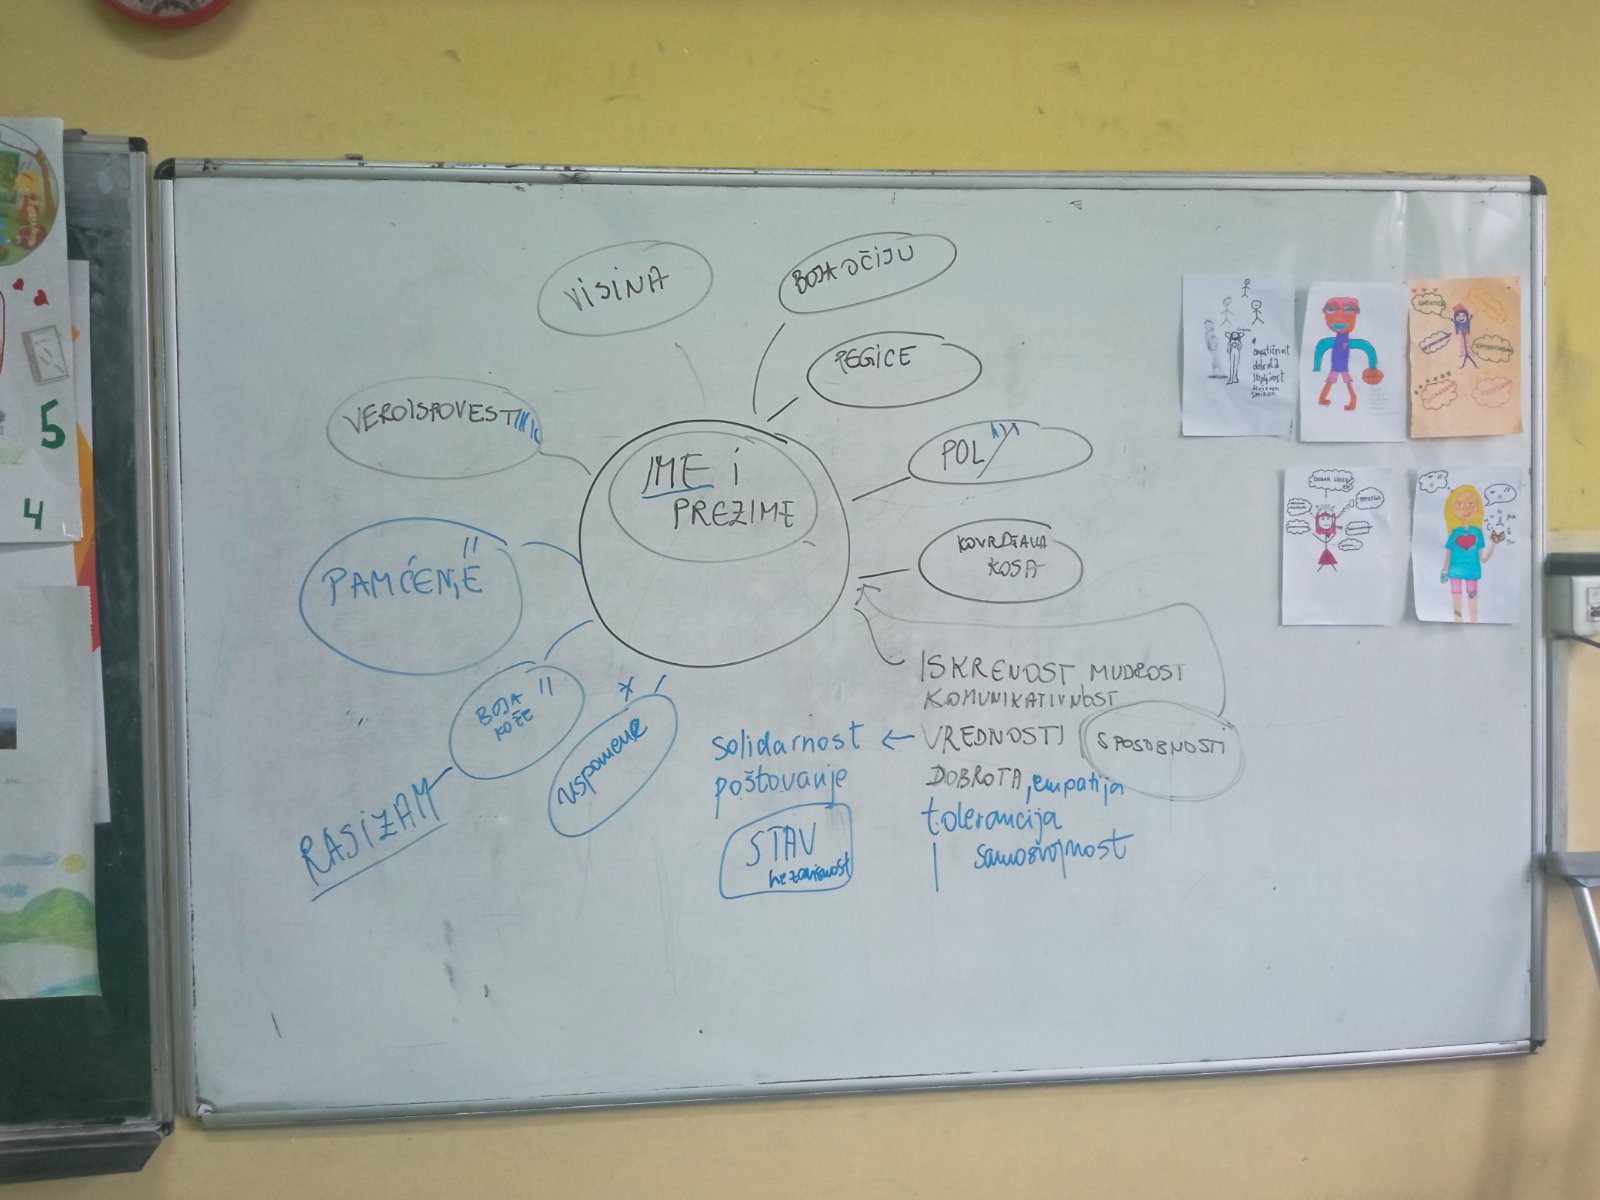 VISINA
BOJA OČIJU
PEGICE
VEROISPOVEST
IME i
PREZIME
POL
KOVRDŽAVA
KOSA
PAMĆENJE
BOJA
KOŽE
RASIZAM
uspomene
ISKRENOST MUDROST
KOMUNIKATIVNOST
solidarnost ← VREDNOSTI SPOSOBNOSTI
poštovanje
DOBROTA, empatija
tolerancija
samosvojnost
STAV
nezavisnost
5
4
dobrota